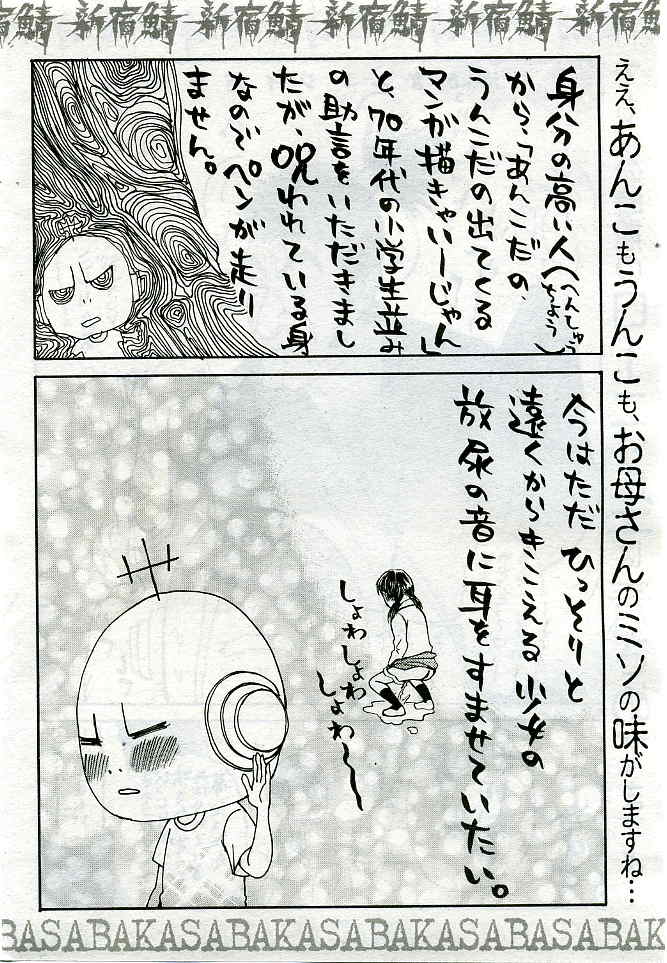 新宿鯖 新宿鯖 新宿鯖 新宿鯖 新宿鯖
ええ、あんこもうんこも、お母さんのミソの味がしますね…
身分の高い人(へんしゅうちょう)
から、「あんこだの、
うんこだの出てくる
マンガ描きゃいーじゃん」
と、70年代の小学生並み
の助言をいただきまし
たが、呪われている身
なのでペンが走り
ません。
今はただ ひっとりと
遠くからきこえる少女の
放尿の音に耳をすませていたい。
しょわ
しょわ
しょわ〜〜
BASABAKASABAKASABAKASABASABASA